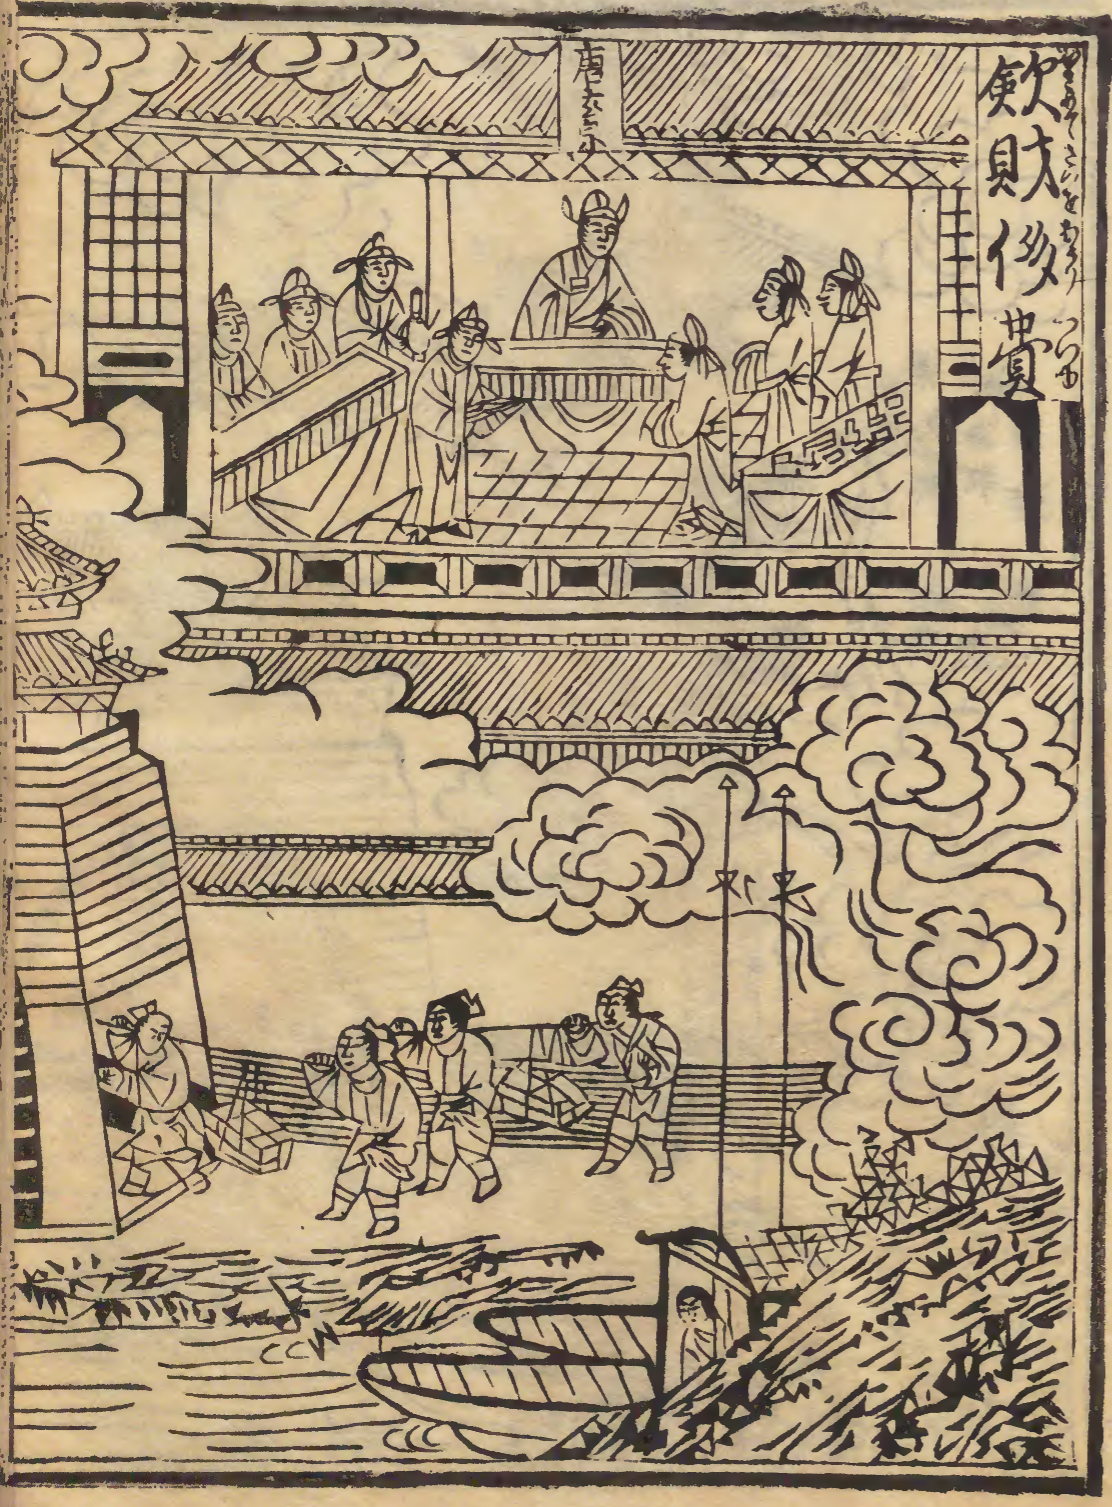 歛財侈費
唐玄宗